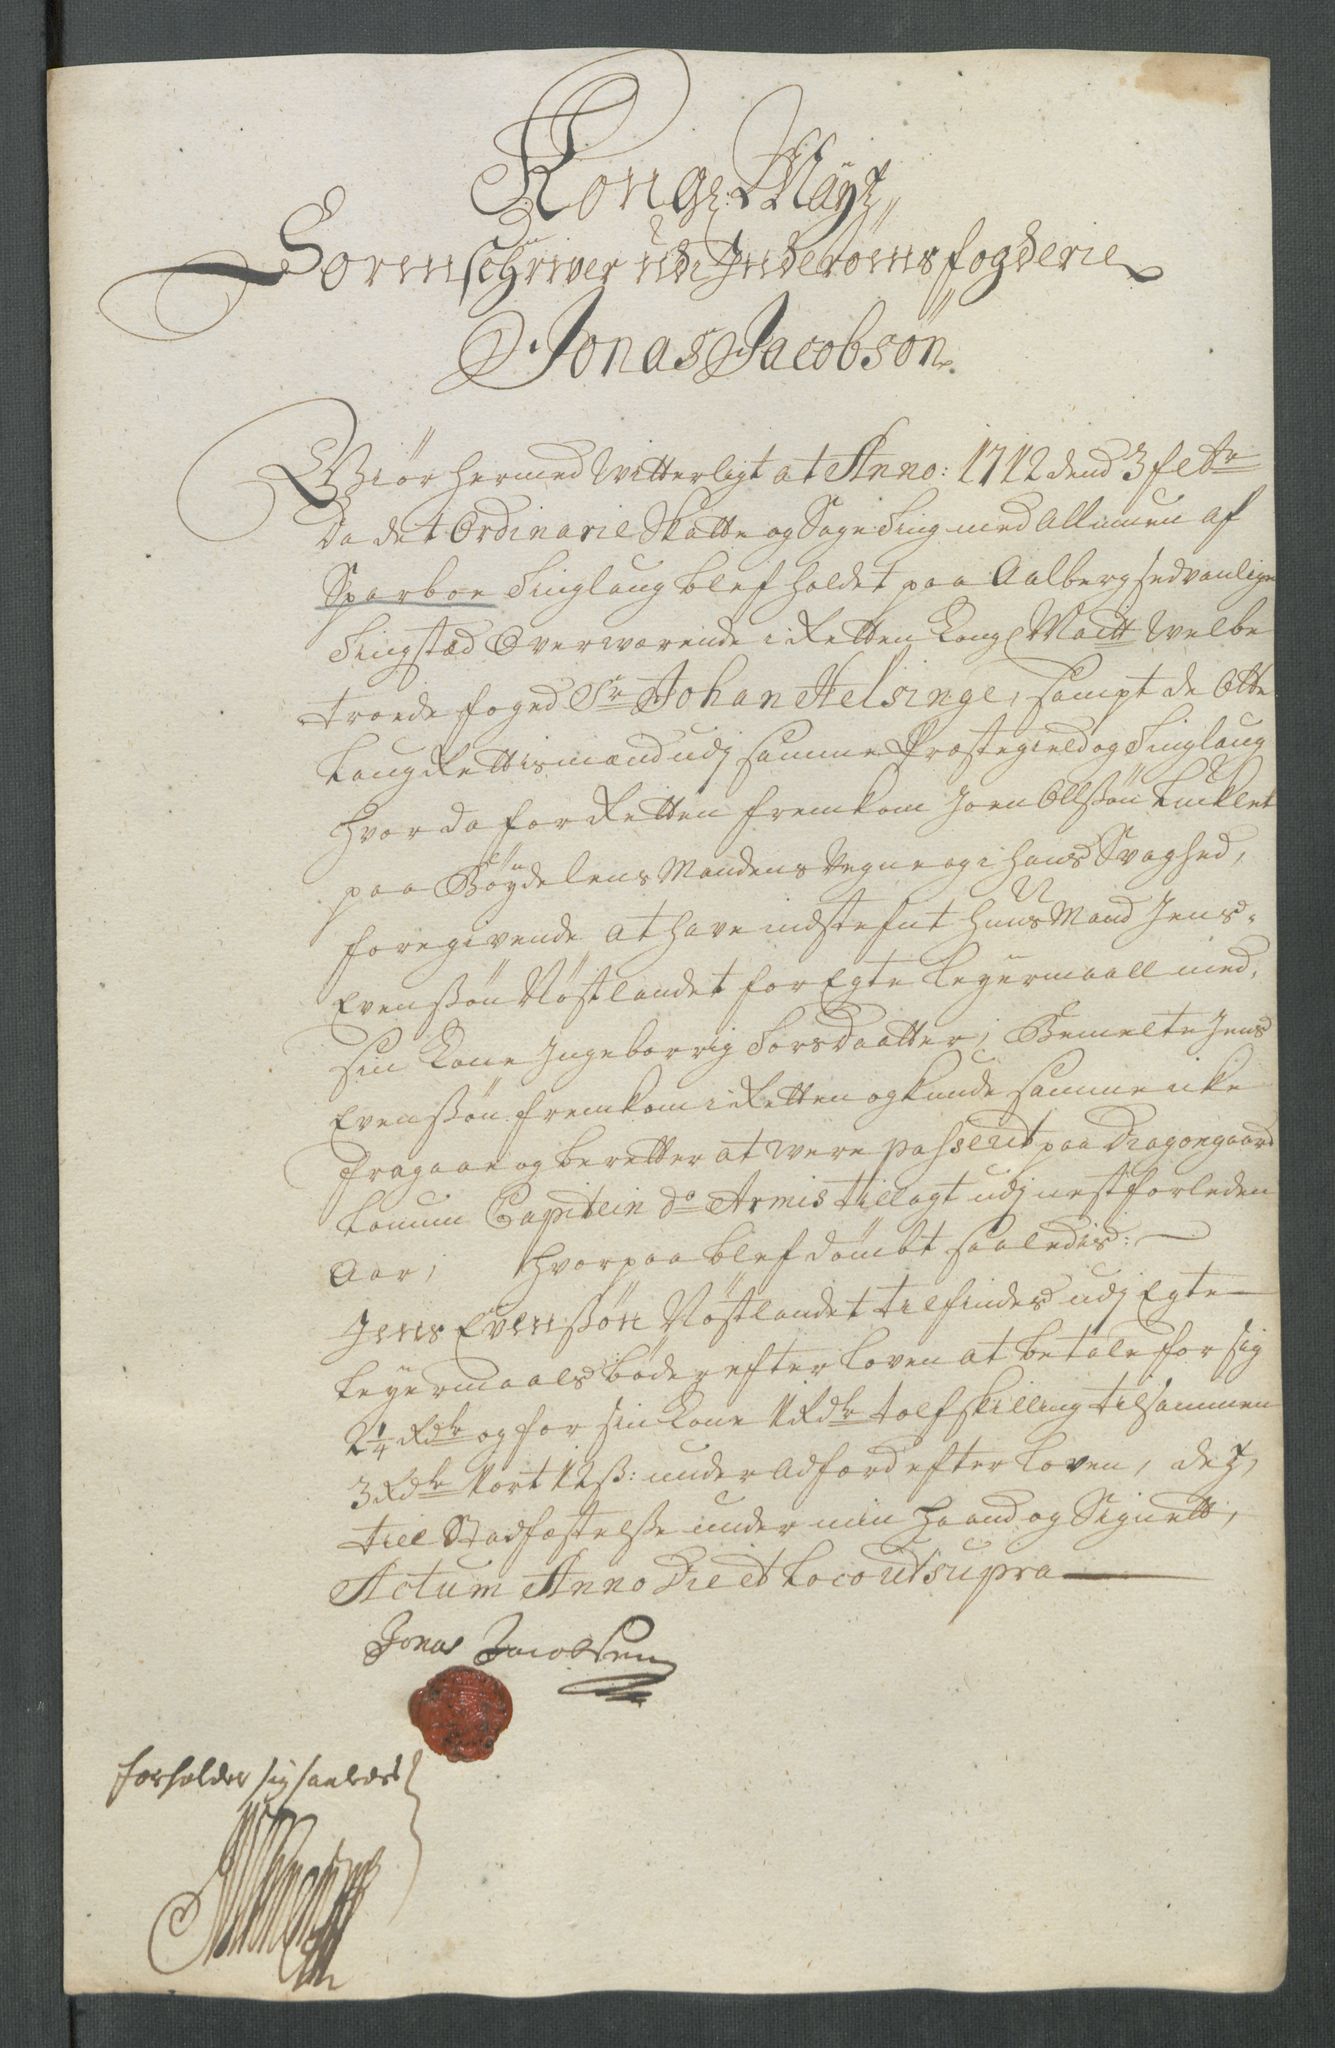 Kong: Mayt:
Sorenschriver udi Inderøens fogderie
Jonas Jacobsøn.
Giør hermed Witterligt at Anno: 1712 dend 3 febr
Da det Ordinarie Skatte og Sage Ting med Allmuen af
Sparboe Tinglaug blef holdet paa Aalberg sedvanlige
Tingstæd Overwærende i Retten Kongl Maitt Welbe
troede foged Sr Johan Helsinge, sampt de Otte
Laug Rettismænd udj samme Præstegield og Tinglaug
hvor da for Retten fremkom Joen Ollssøn
paa Bøygdelens Mandens Vegne og i hans Svaghed,
foregivende at have indstefnt huus Mand Jens
Evenssøn Nøstlandet for Egte Leyermaall med
sin Kone Ingeborrig Torsdaatter, Bemelte Jens
Evenssøn fremkom i Retten og kunde samme icke
fragaae og beretter at were passerit paa Dragongaard
Capitein de Armis tillagt udj nest forleden
Aar, hvorpaa blef dømbt saaledis:
Jens Evenssøn Nøstlandet tilfindes udj Egte
Leyermaals bøder efter Loven at betale for sig
2 1/4 Rdr og for sin Kone 1 Rdr tolf skilling tilsammen
3 Rdr 1 ort 12 ß: under Adfærd efter Loven, dets
till Stadfæstelsse under min haand og Signett,
Actum Anno Die et Loco ut supra
Jonas Jacobsen
forholder sig saaledes